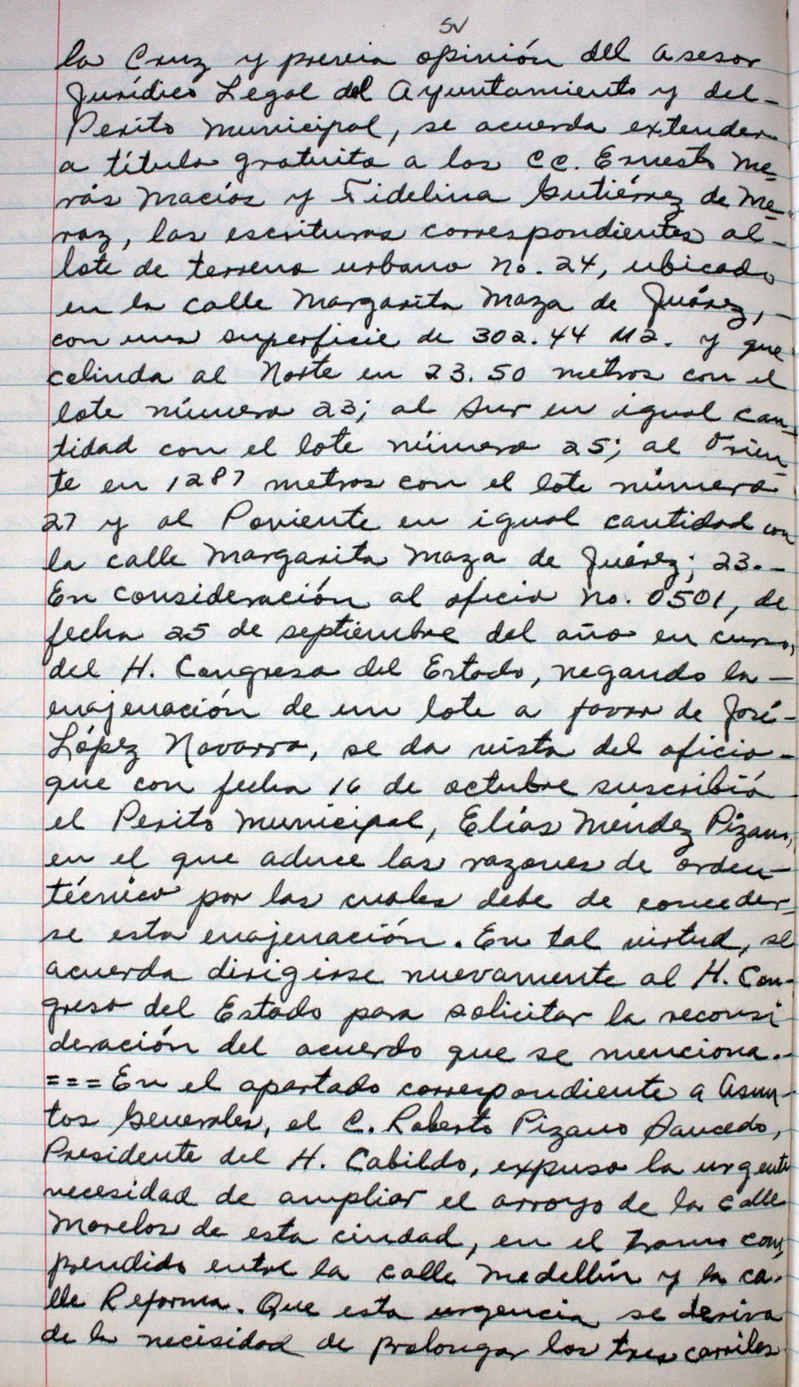 la Cruz y previa opinión del asesor
Jurídico Legal del Ayuntamiento y del-
Perito Municipal, se acuerda extender
a título gratuito a los CC. Ernesto Me-
rás Macías y Fidelina Gutiérrez de Me-
raz, las escrituras correspondientes al-
lote de terreno urbano No. 24, ubicado
en la calle Margarita Maza de Juárez,-
con una superficie de 302.44 M2. y que
colinda al Norte en 23.50 metros con el
lote número 23; al Sur en igual can-
tidad con el lote número 25; al Orien-
te en 1287 metros con el lote número
27 y al Poniente en igual cantidad con
la calle Margarita Maza de Juárez; 23.-
En consideración al oficio No. 0501, de
fecha 25 de septiembre del año en curso,
del H. Congreso del Estado, negando la-
enajenación de un lote a favor de José-
López Navarro, se da vista del oficio-
que con fecha 16 de octubre suscribió
el Perito Municipal, Elías Méndez Pizano,
en el que aduce las razones de orden-
técnico por las cuales debe de conceder-
se esta enajenación. En tal virtud, se
acuerda dirigirse nuevamente al H. Con-
greso del Estado para solicitar la reconsi-
deración del acuerdo que se menciona.-
===En el apartado correspondiente a Asun-
tos Generales, el C. Roberto Pizano Saucedo,
Presidente del H. Cabildo, expuso la urgente
necesidad de ampliar el arroyo de la calle
Morelos de esta ciudad, en el tramo com-
prendido entre la calle Medellín y la ca-
lle Reforma. Que esta urgencia se deriva
de la necisidad de prolongar los tres carriles